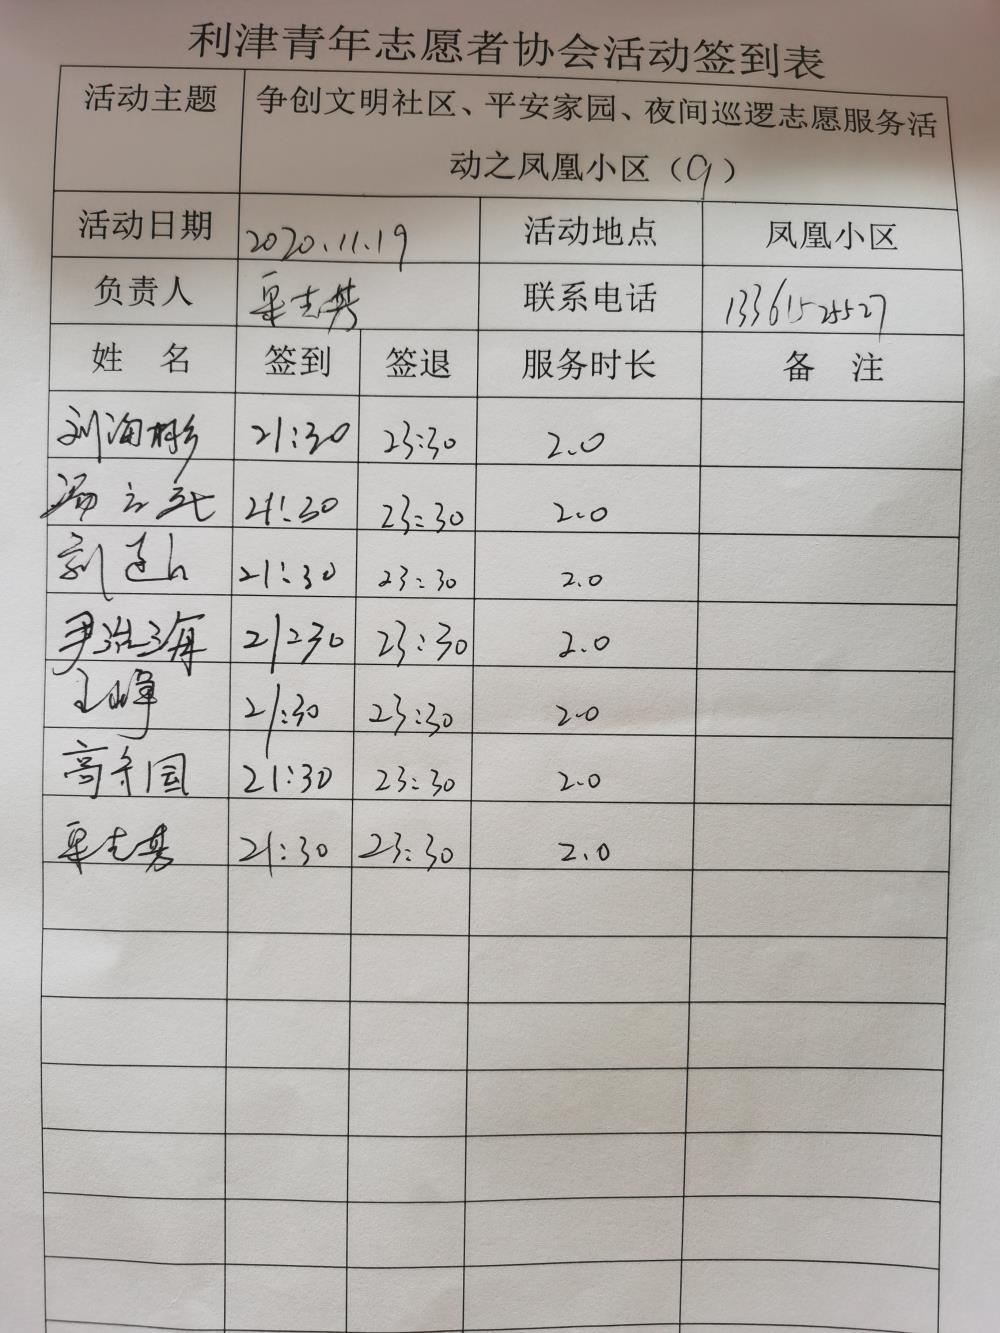 利津青年志愿者协会活动签到表
活动主题 争创文明社区、平安家园、夜间巡逻志愿服务活
动之凤凰小区（9）
活动日期 2020.11.19 活动地点 凤凰小区
负责人 联系电话 13361525527
姓 名 签到 签退 服务时长 备 注
刘海彬 21:30 23:30 2.0
21:30 23:30 2.0
刘 21:30 23:30 2.0
尹治海 21:30 23:30 2.0
王峰 21:30 23:30 2.0
高守国 21:30 23:30 2.0
21:30 23:30 2.0